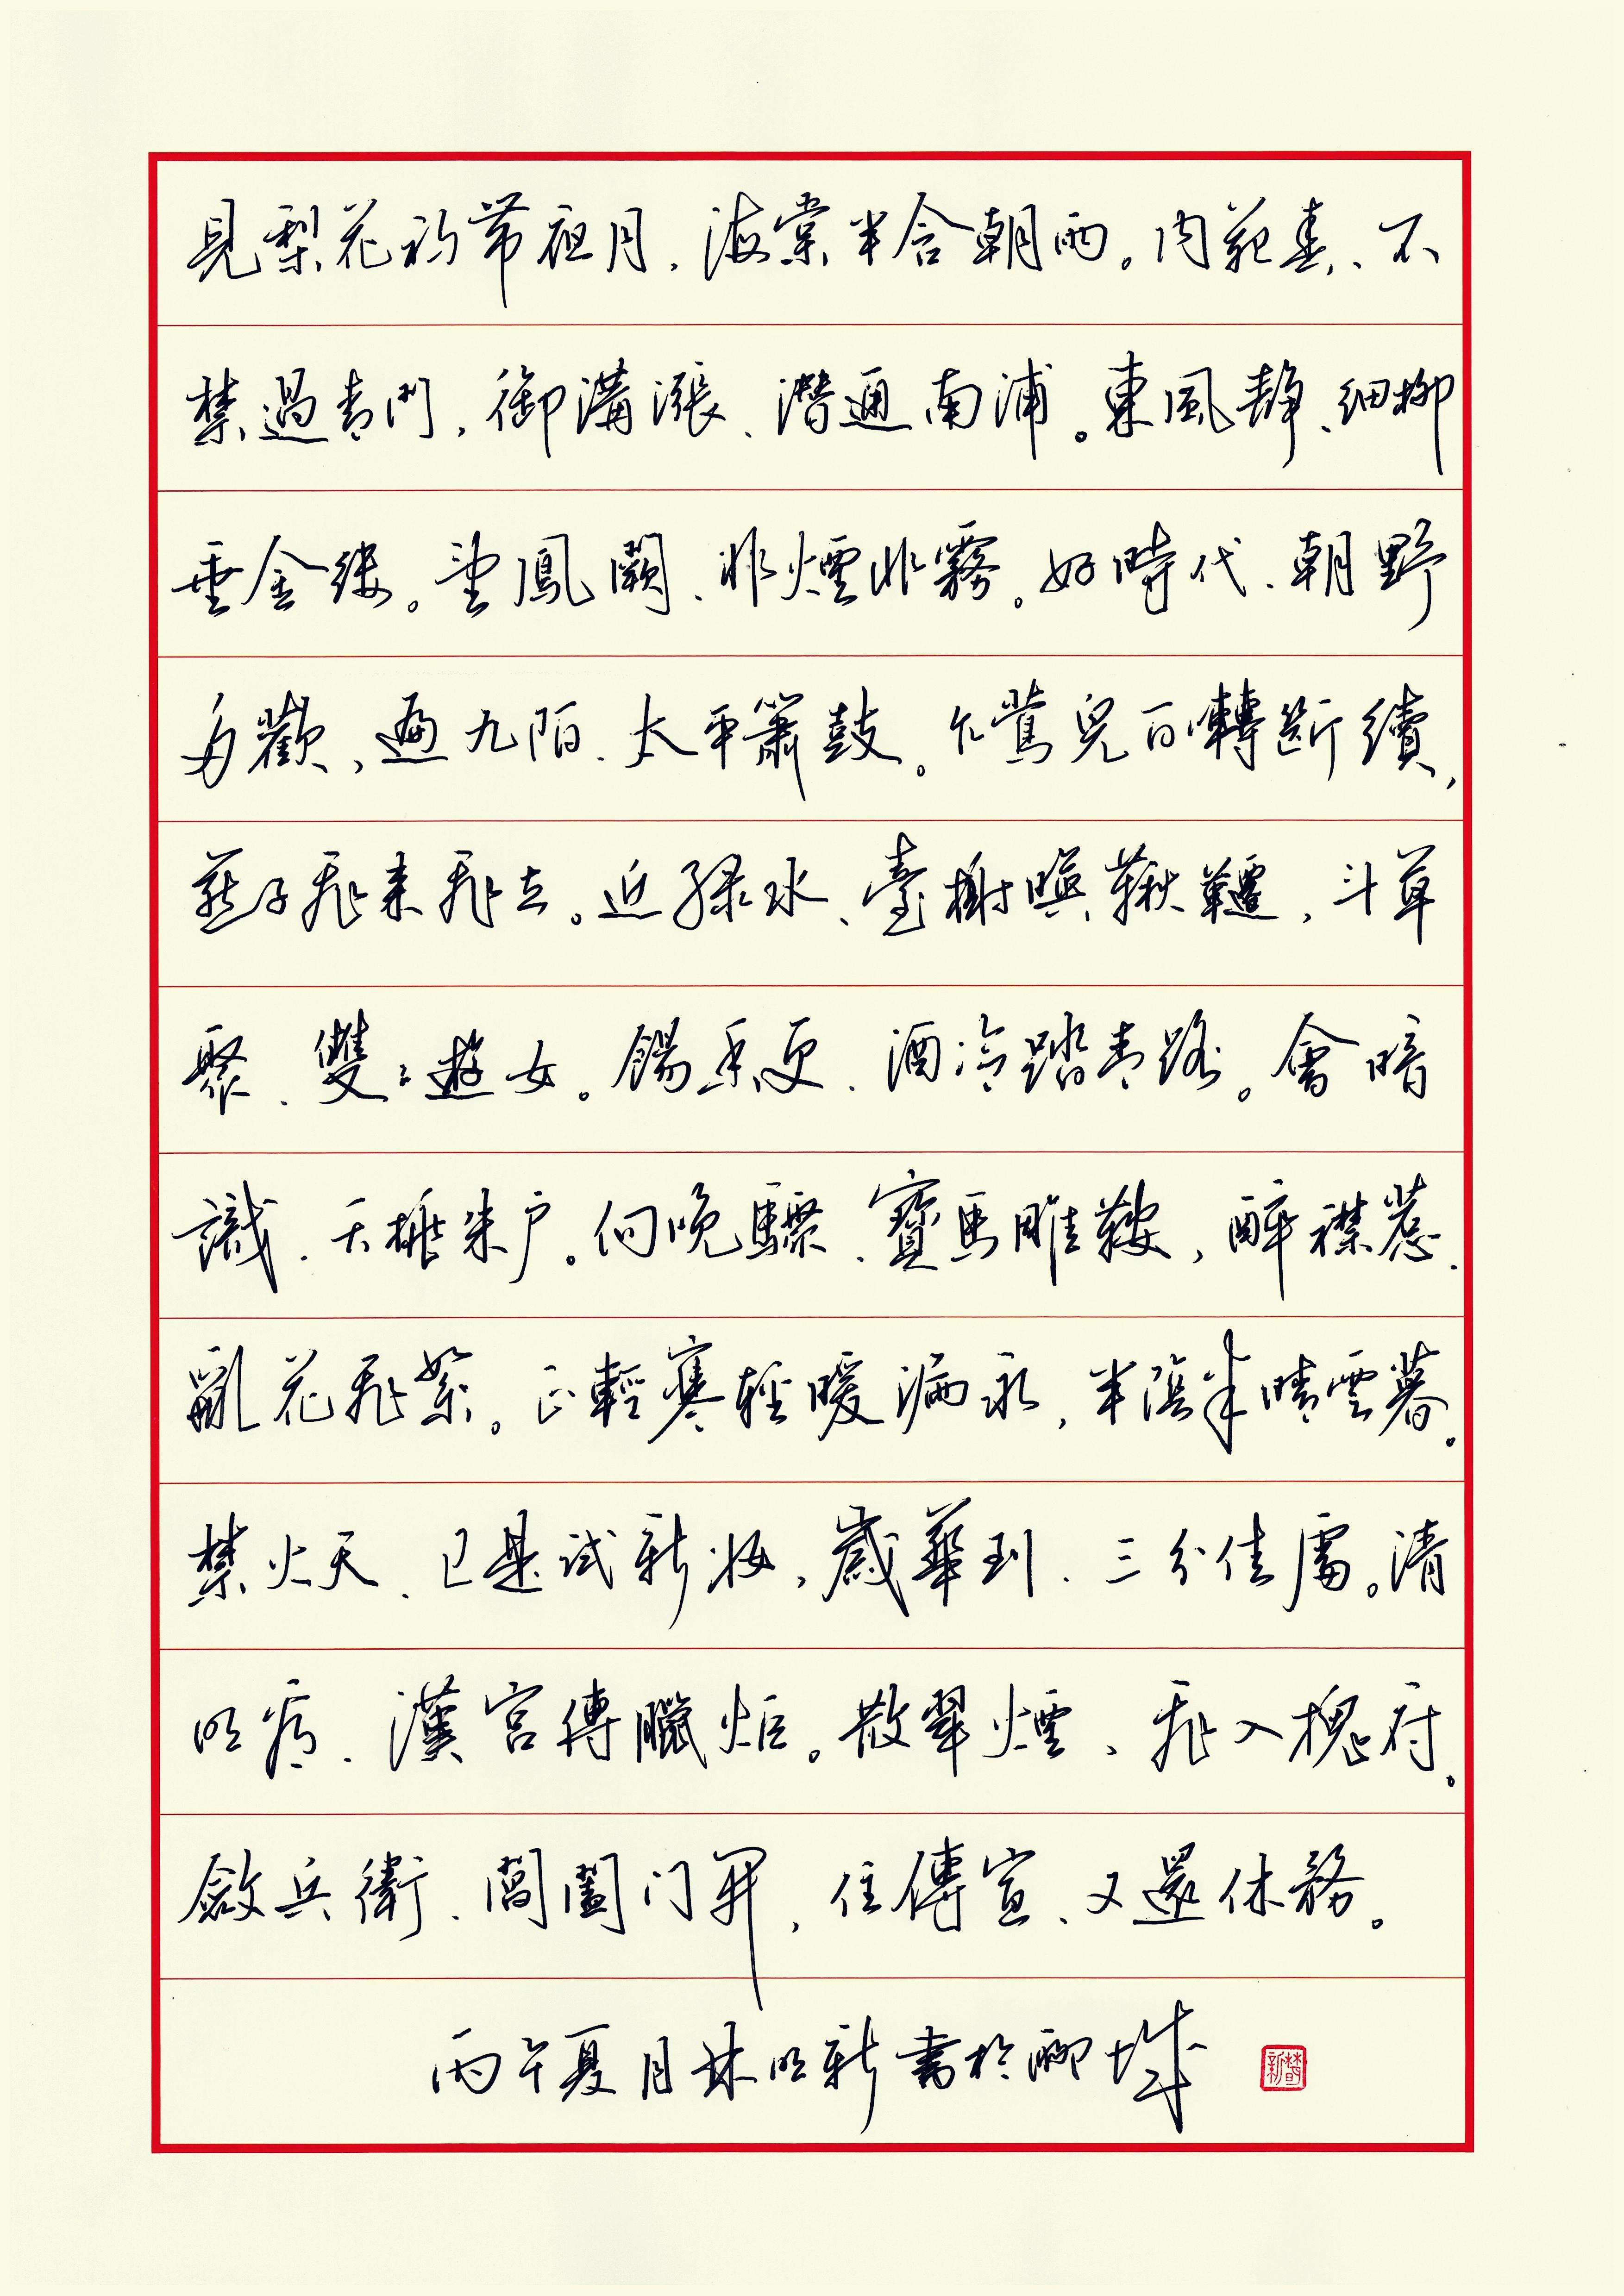 見梨花初帶夜月，海棠半含朝雨。內苑春、不
禁過青門，御溝漲、潛通南浦。東風静、細柳
垂金縷。望鳳闕、非煙非霧。好時代、朝野
多歡，遍九陌、太平簫鼓。乍鶯兒百囀斷續，
燕子飛來飛去。近綠水、臺榭映鞦韆，鬥草
聚、雙雙遊女。餳香更、酒冷踏青路。會暗
識、夭桃朱户。向晚驟、寶馬雕鞍，醉襟惹、
亂花飛絮。正輕寒輕暖漏永，半陰半晴雲暮。
禁火天、已是試新妝，歲華到、三分佳處。清
明看、漢宮傳臘炬。散翠煙、飛入槐府。
斂兵衛、閶闔门開，住傳宣、又還休務。
丙午夏月林明新書於聊城